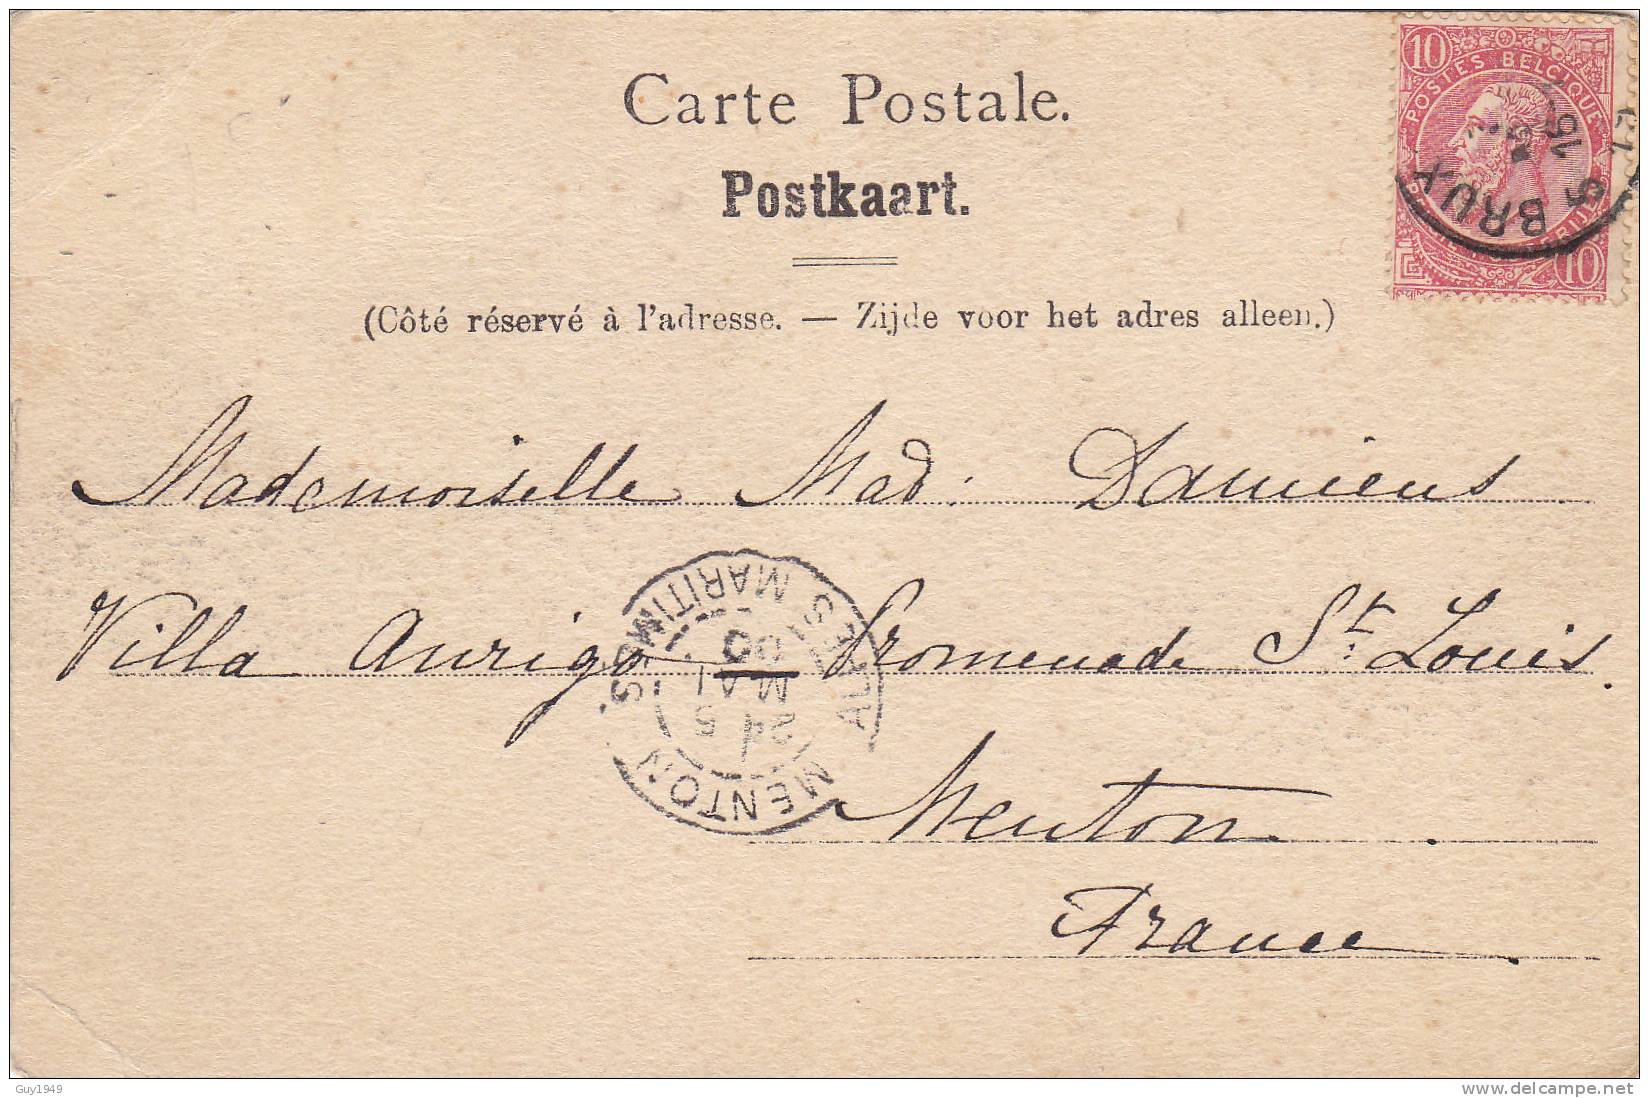 Carte Postale.
Postkaart.
(Côté réservé à l'adresse. — Zijde voor het adres alleen.)
10
POSTES BELGIQUE
10
BRUX
Mademoiselle Mad: Damiens
Villa Aurigo — Promenade St. Louis.
Menton
France
MENTON
ALPES MARITIMES
MAI
00
Guy1949
delcampe.net